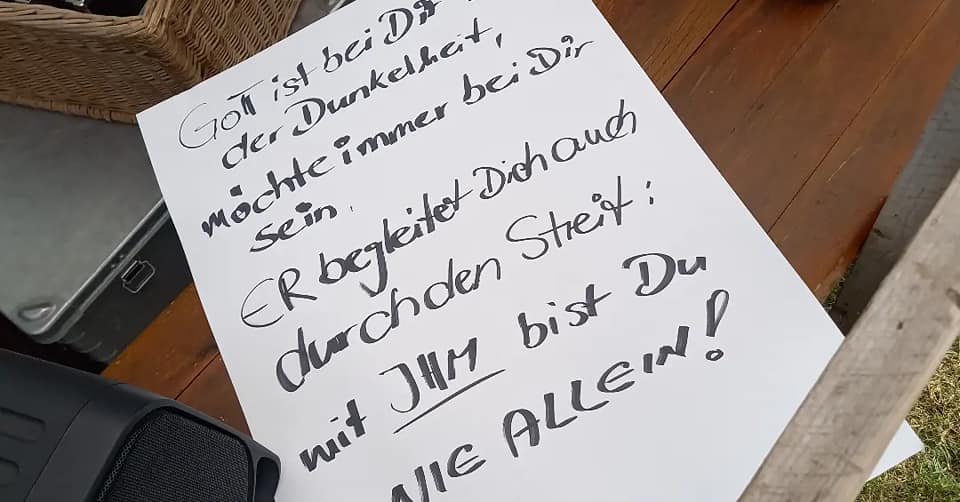 GOTT ist bei Dir
der Dunkelheit,
möchte immer bei Dir
sein.
ER begleitet Dich auch
durch den Streit:
mit IHM bist Du
NIE ALLEIN!